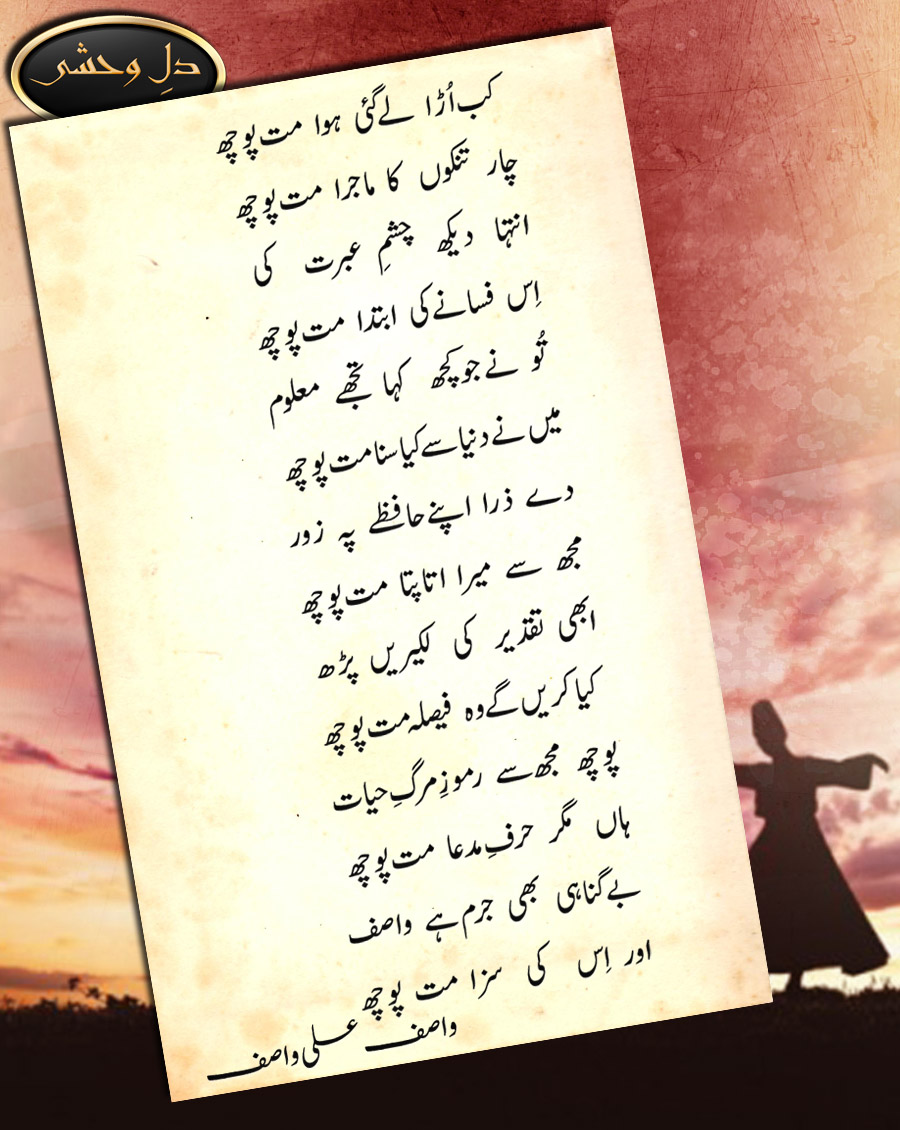 دلِ وحشی
کب اُڑا لے گئی ہوا مت پوچھ
چار تنکوں کا ماجرا مت پوچھ
انتہا دیکھ چشمِ عبرت کی
اِس فسانے کی ابتدا مت پوچھ
تُو نے جو کچھ کہا تجھے معلوم
میں نے دنیا سے کیا سنا مت پوچھ
دے ذرا اپنے حافظے پہ زور
مجھ سے میرا اتا پتا مت پوچھ
ابھی تقدیر کی لکیریں پڑھ
کیا کریں گے وہ فیصلہ مت پوچھ
پوچھ مجھ سے رموزِ مرگِ حیات
ہاں مگر حرفِ مدعا مت پوچھ
بے گناہی بھی جرم ہے واصف
اور اِس کی سزا مت پوچھ
واصف علی واصف